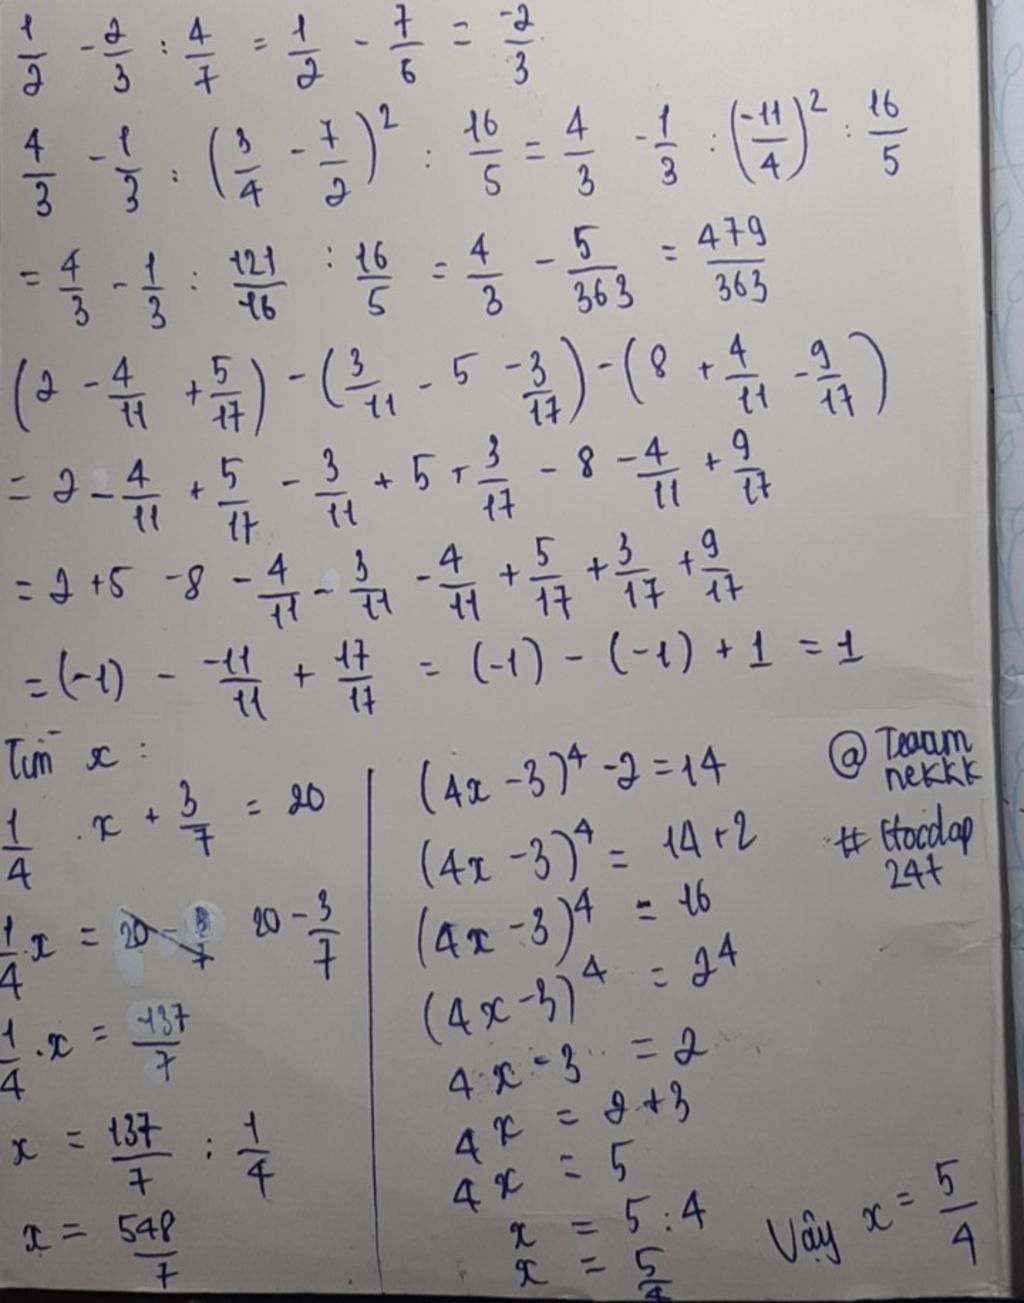 1/2 - 2/3 : 4/7 = 1/2 - 7/6 = -2/3
4/3 - 1/3 : (3/4 - 7/2)² : 16/5 = 4/3 - 1/3 : (-11/4)² : 16/5
= 4/3 - 1/3 : 121/16 : 16/5 = 4/3 - 5/363 = 479/363
(2 - 4/11 + 5/17) - (3/11 - 5 - 3/17) - (8 + 4/11 - 9/17)
= 2 - 4/11 + 5/17 - 3/11 + 5 + 3/17 - 8 - 4/11 + 9/17
= 2 + 5 - 8 - 4/11 - 3/11 - 4/11 + 5/17 + 3/17 + 9/17
= (-1) - -11/11 + 17/17 = (-1) - (-1) + 1 = 1
Tìm x :
1/4 . x + 3/7 = 20
1/4 . x = 20 - 3/7 20 - 3/7
1/4 . x = 137/7
x = 137/7 : 1/4
x = 548/7
(4x - 3)⁴ - 2 = 14
(4x - 3)⁴ = 14 + 2
(4x - 3)⁴ = 16
(4x - 3)⁴ = 2⁴
4x - 3 = 2
4x = 2 + 3
4x = 5
x = 5 : 4
x = 5/4
Vậy x = 5/4
@ Teaam
nekkk
# Hocdap
247